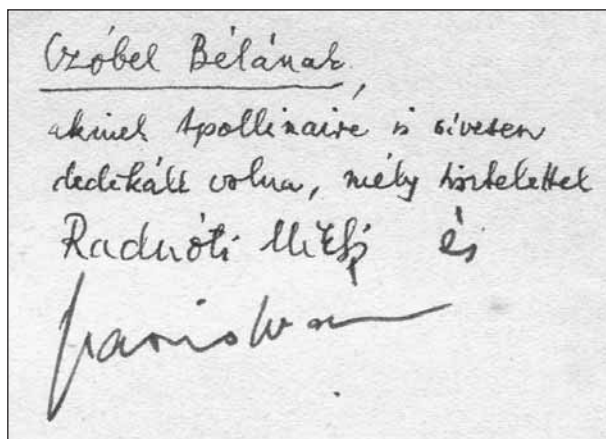 Czóbel Bélának,
akinek Apollinaire is szívesen
dedikált volna, mély tisztelettel
Radnóti Mikl és